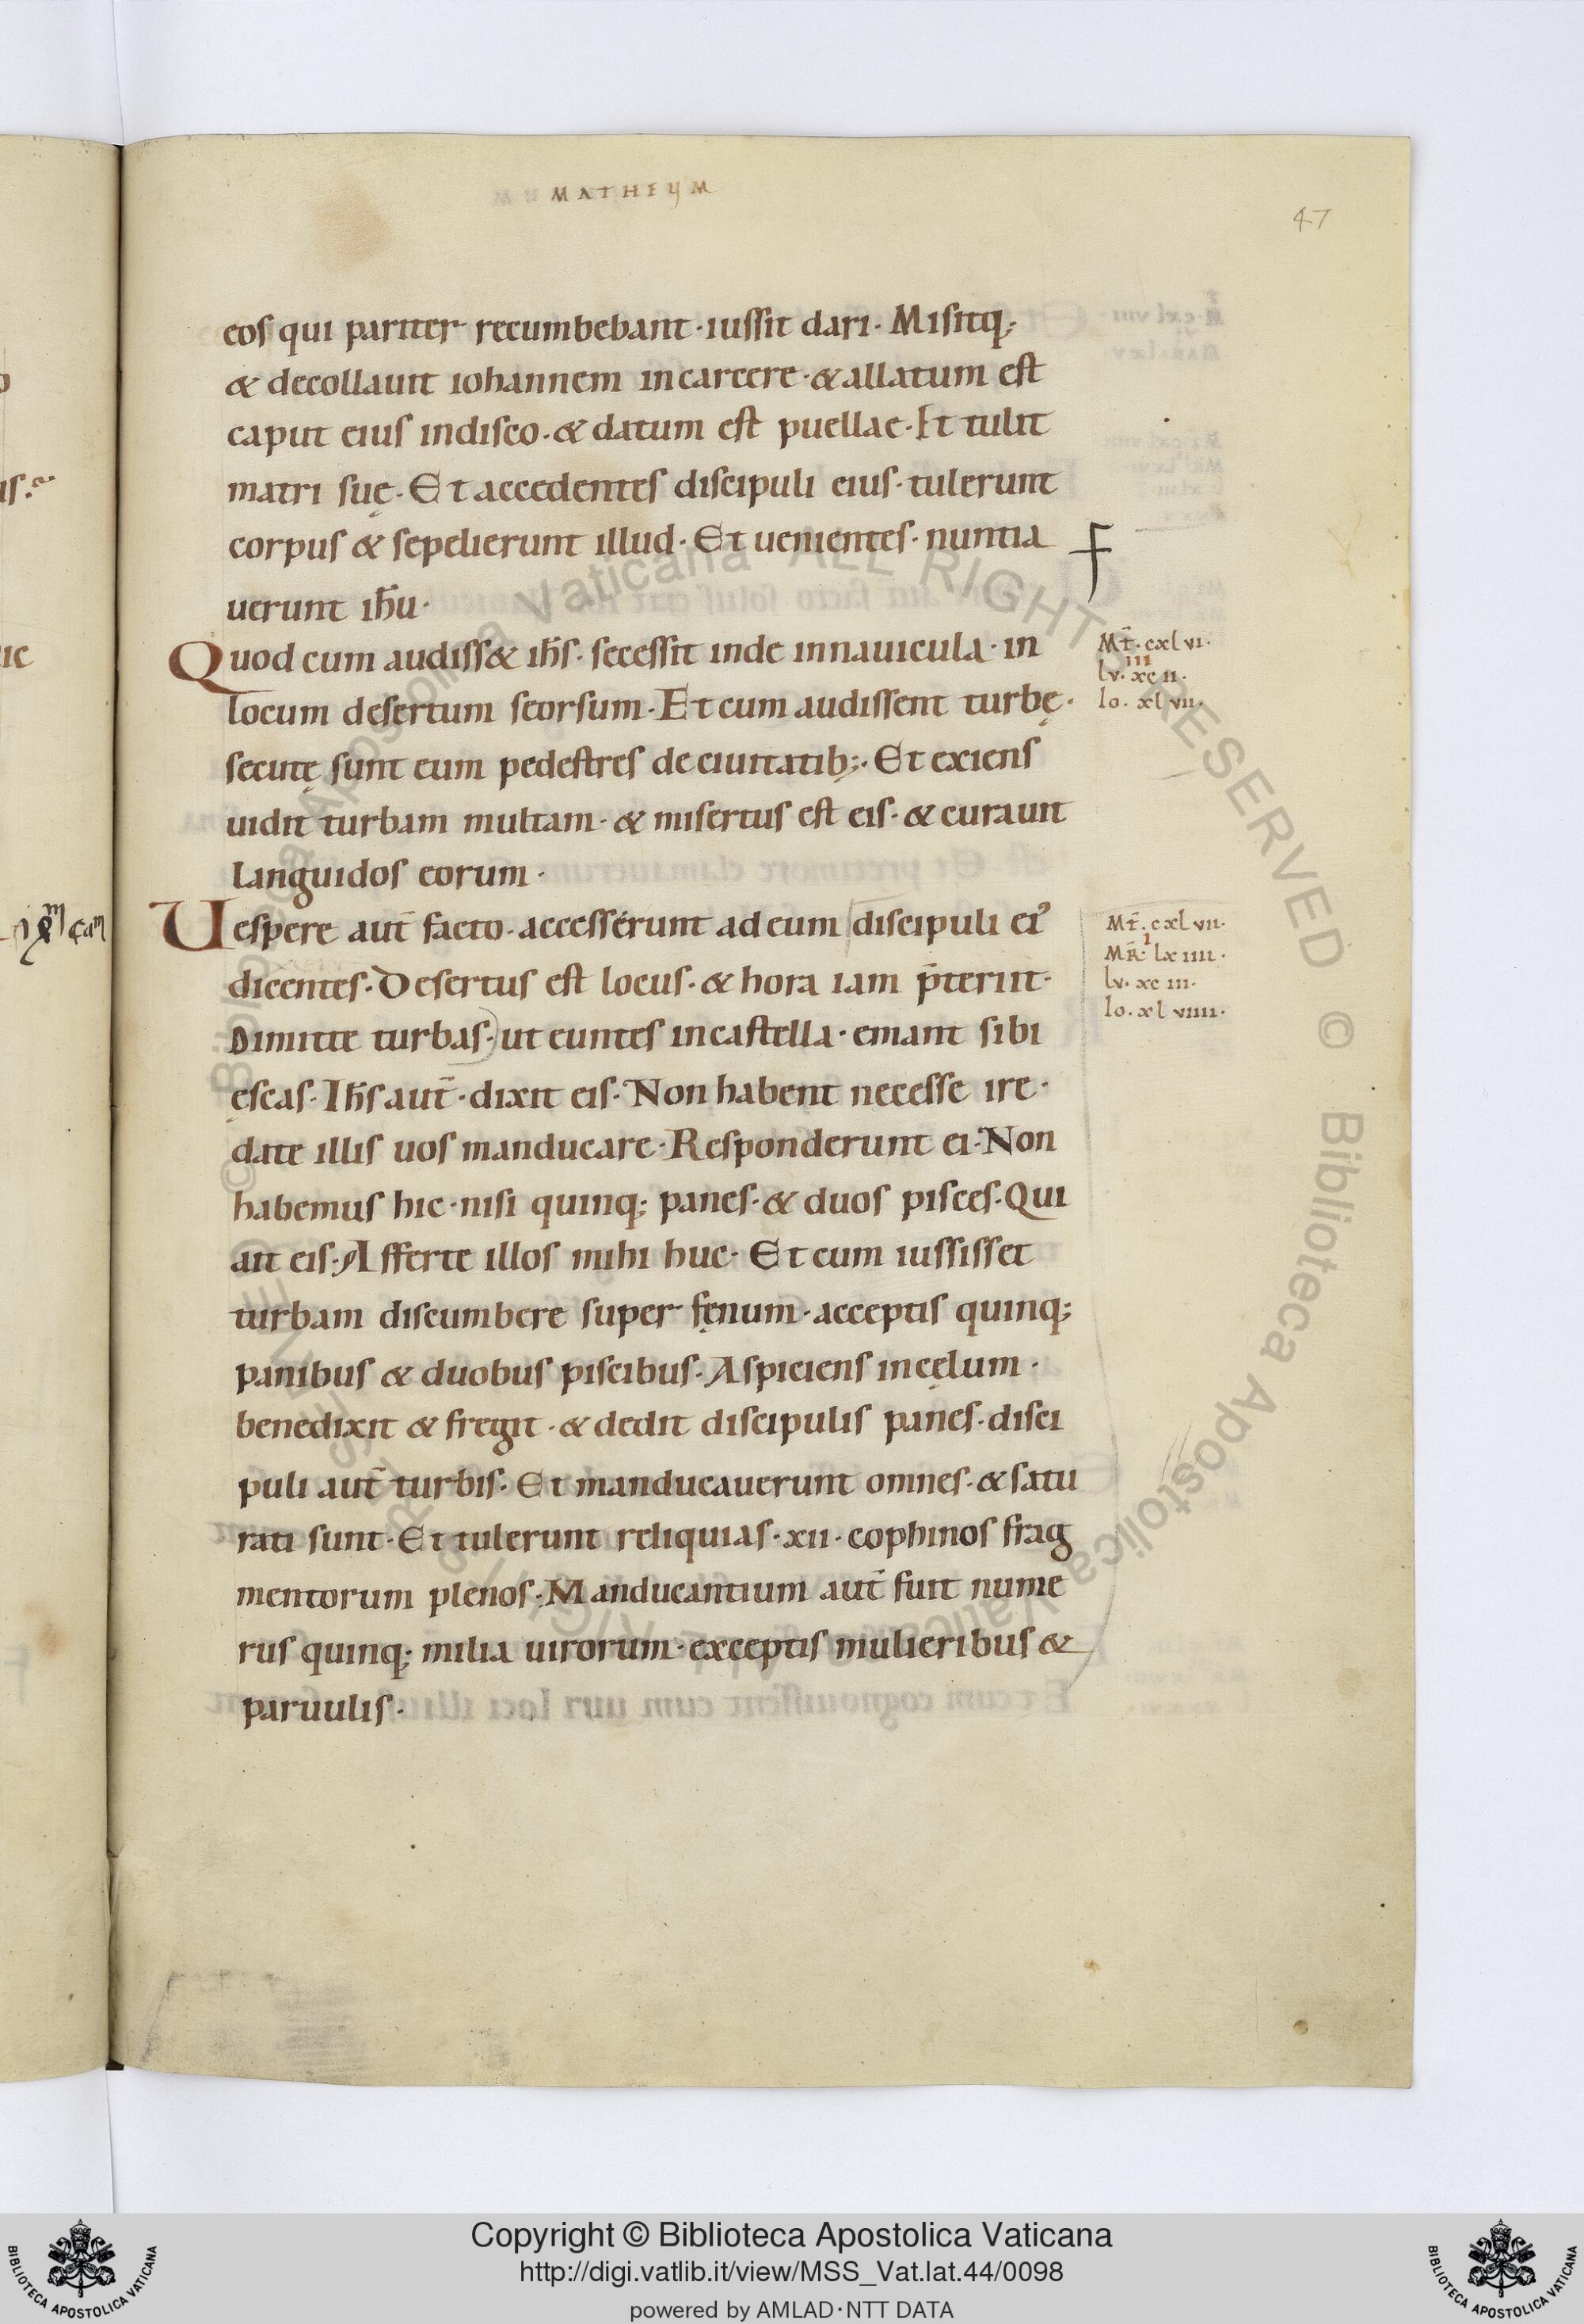 MATHEUM
47
eos qui pariter recumbebant · iussit dari · Misitq;
& decollauit iohannem incarcere · & allatum est
caput eius indisco · & datum est puellae · Et tulit
matri suę · Et accedentes discipuli eius · tulerunt
corpus & sepelierunt illud · Et uenientes · nuntia
uerunt ih̅u ·
Quod cum audiss& ih̅s · secessit inde innauicula · in
locum desertum seorsum · Et cum audissent turbę ·
secutę sunt eum pedestres de ciuitatib; · Et exiens
uidit turbam multam · & misertus est eis · & curauit
languidos eorum ·
Mt̅ · cxlvi ·
III
lv · xcii ·
Io · xlvii ·
Uespere aut̅ facto · accesserunt ad eum discipuli ei᾽
dicentes · Desertus est locus · & hora iam p̅teriit ·
Dimitte turbas · ut euntes incastella · emant sibi
escas · Ih̅s aut̅ · dixit eis · Non habent necesse ire ·
date illis uos manducare · Responderunt ei · Non
habemus hic · nisi quinq; panes · & duos pisces · Qui
ait eis · Afferte illos mihi huc · Et cum iussisset
turbam discumbere super fęnum · acceptis quinq;
panibus & duobus piscibus · Aspiciens incęlum ·
benedixit & fregit · & dedit discipulis panes · disci
puli aut̅ turbis · Et manducauerunt omnes · & satu
rati sunt · Et tulerunt reliquias · xii · cophinos frag
mentorum plenos · Manducantium aut̅ fuit nume
rus quinq; milia uirorum · exceptis mulieribus &
paruulis ·
Mt̅ · cxlvii ·
I
MR̅ · lxiiii ·
lv · xciii ·
Io · xlviiii ·
© Biblioteca Apostolica Vaticana ALL RIGHTS RESERVED © Biblioteca Apostolica Vaticana ALL RIGHTS RESERVED
BIBLIOTECA APOSTOLICA VATICANA
Copyright © Biblioteca Apostolica Vaticana
http://digi.vatlib.it/view/MSS_Vat.lat.44/0098
powered by AMLAD·NTT DATA
BIBLIOTECA APOSTOLICA VATICANA